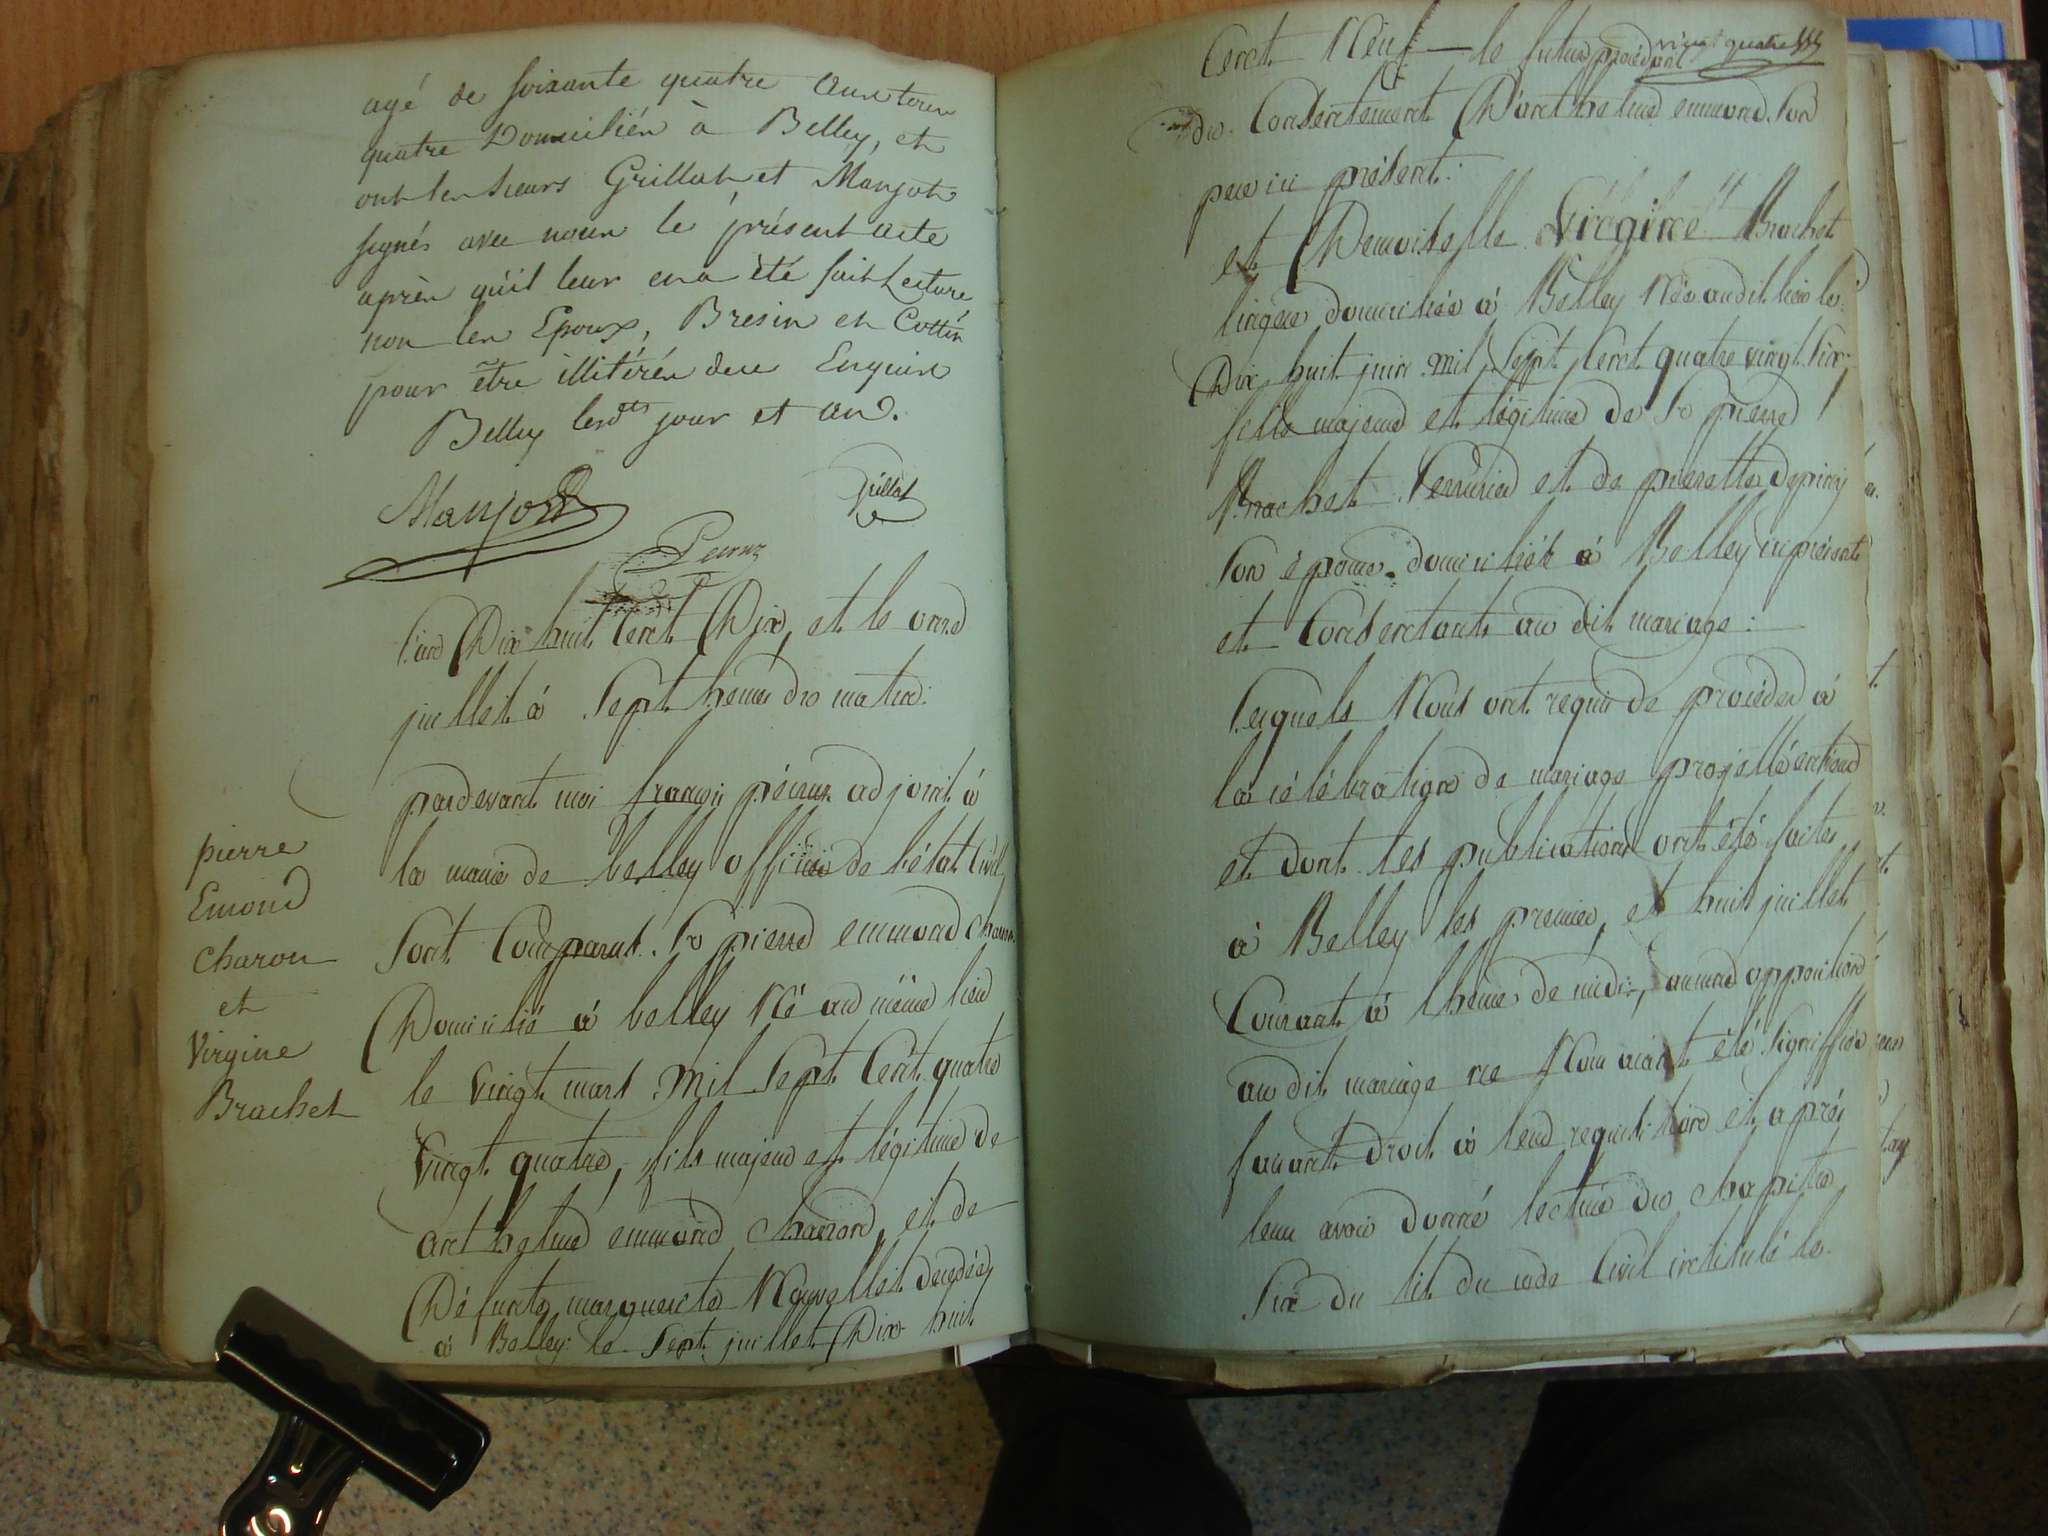 agé de soixante quatre ans tous
quatre Domiciliés à Belley, et
ont les sieurs Grillat et Manjot
signés avec nous le présent acte
après qu'il leur en a été fait Lecture
non les Epoux, Bresin et Cottin
pour être illitérés de ce Enquis
Belley lesdts jour et an.
Manjot
Grillat
Pecruz
l'an Dix huit Cent Dix, et le onze
juillet à Sept heures du matin.
pardevant moi françois pécruz adjoint à
la mairie de belley officier de l'état Civill
Sont Comparus. Sr pierre emmond charon
Domicilié à belley Né au même lieu
le vingt mars Mil Sept Cent quatre
vingt quatre, fils majeur et légitime de
anthelme emmond charron, et de
Défunte marguerite Nouvellet decedée
à Belley le Sept juillet Dix huit
pierre
Emond
charon
et
Virgine
Brachet
vingt quatre
Cent Neuf — le futur procédant
du Consentement D'anthelme emmond Son
pere ici présent:
et Demoiselle Virginie Brachet
lingere domiciliée à Belley Née audit lieu le
Dix huit juin Mil Sept Cent quatre vingt Six
fille majeure et légitime de Sr pierre
Brachet Serrurier et de pierrette
Son épouse domiciliés à Belley ici présents
et Consentants au dit mariage:
Lesquels Nous ont requis de procéder à
la célébration de mariage projetté entreux
et dont les publications ont été faites
à Belley les premier, et huit juillet
Courant à l'heure de midi, aucune opposition
au dit mariage ne Nous aiant été Signiffiée
faisant droit à leur requisition et après
leur avoir donné lecture du chapitre
Six du tit. du code Civil intitulé le